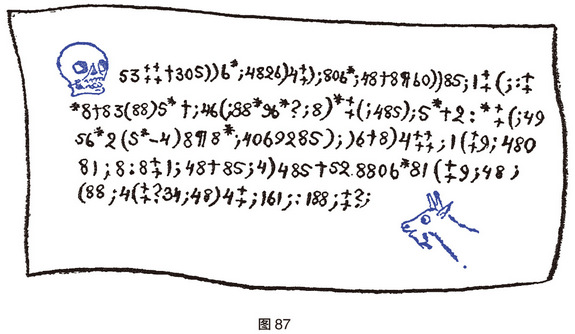 53‡‡†305))6*;4826)4‡);806*;48†8¶60))85;1‡(;:‡
*8†83(88)5*†;46(;88*96*?;8)*‡(;485);5*†2:*‡(;49
56*2(5*-4)8¶8*;4069285);)6†8)4‡‡;1(‡9;480
81;8:8‡1;48†85;4)485†52.8806*81(‡9;48;
(88;4(‡?34;48)4‡;161;:188;‡?;
图 87